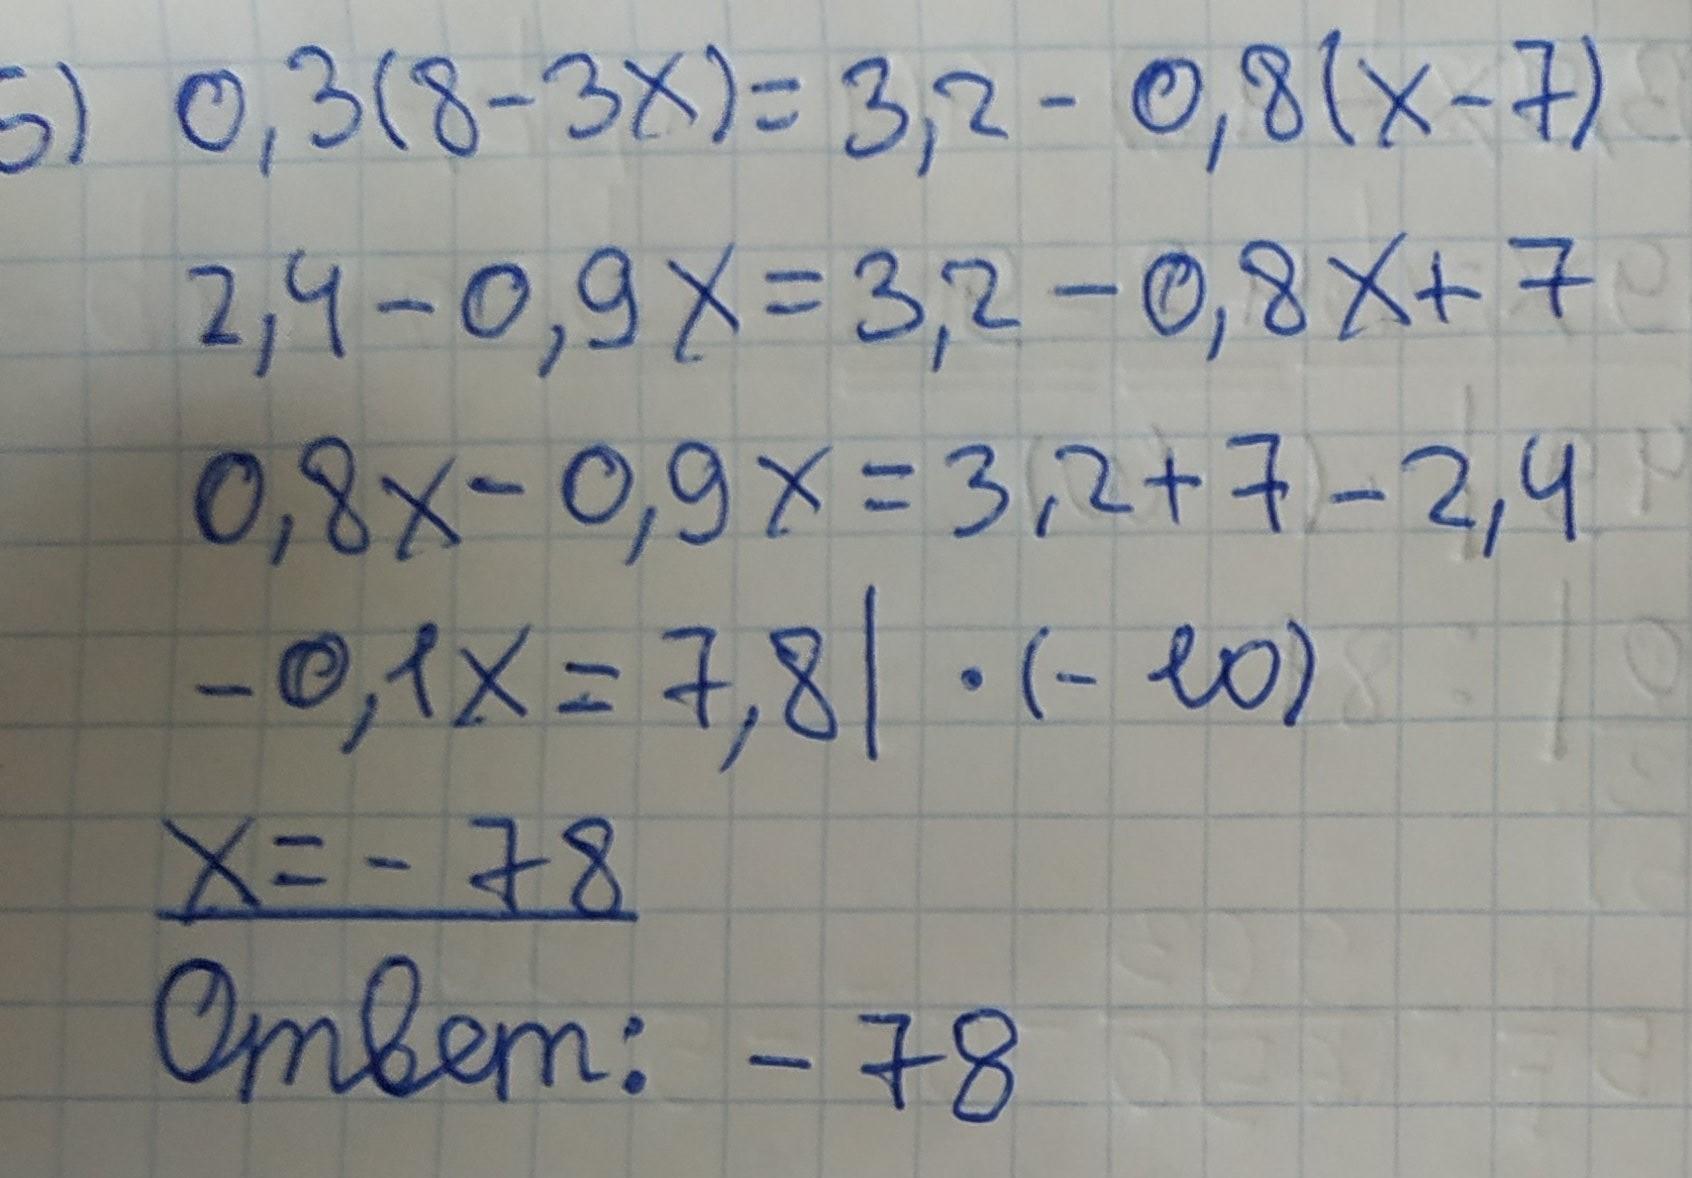 5) 0,3(8-3x)=3,2-0,8(x-7)
2,4-0,9x=3,2-0,8x+7
0,8x-0,9x=3,2+7-2,4
-0,1x=7,8|·(-10)
x=-78
Ответ: -78